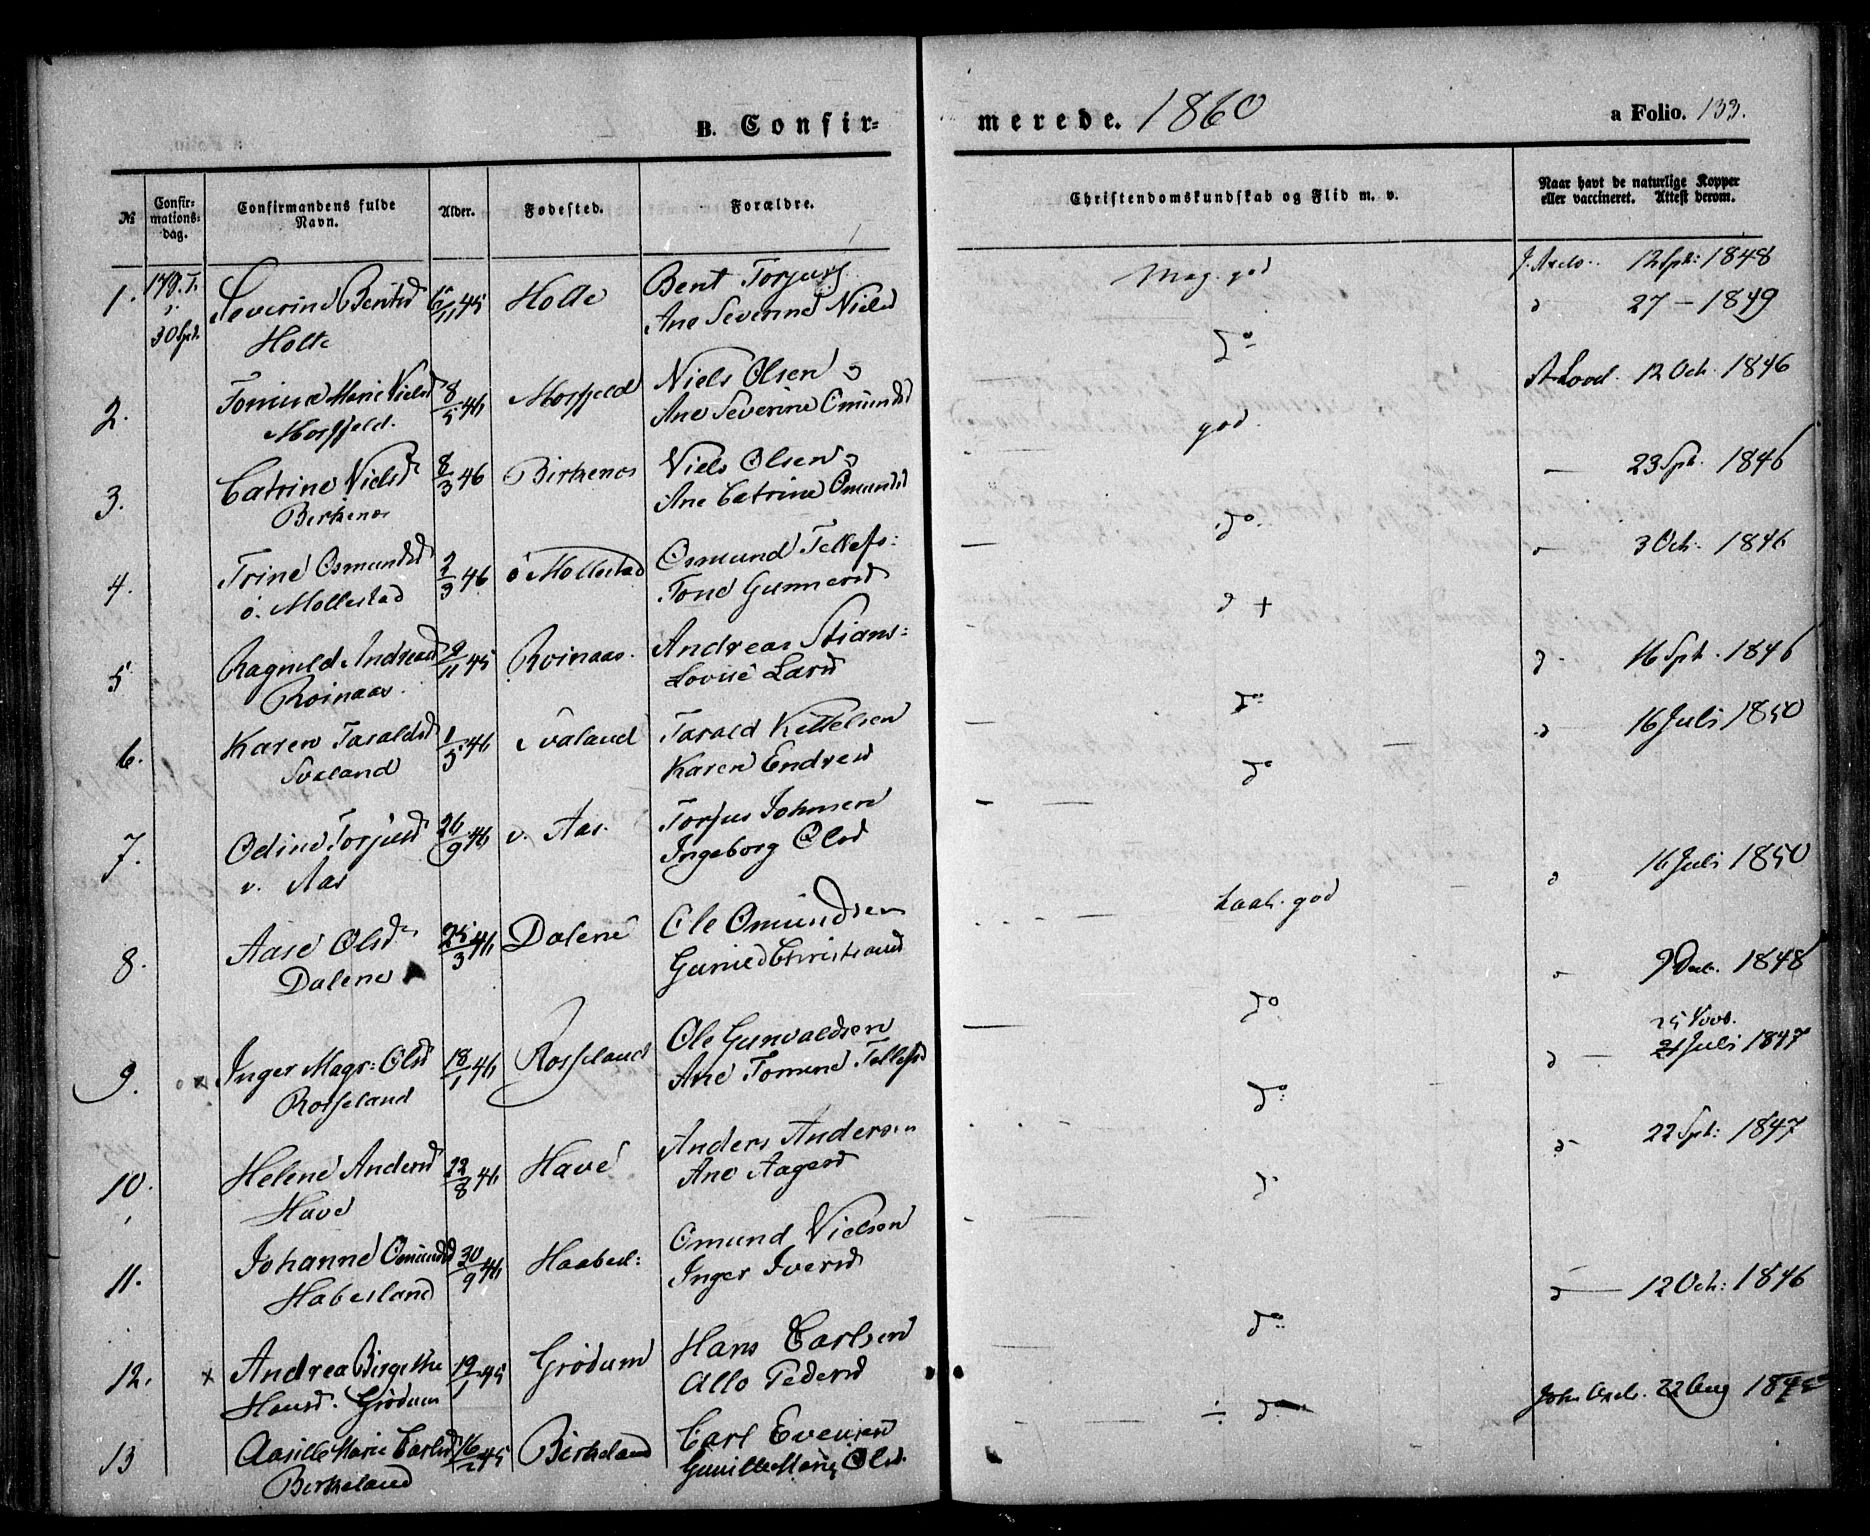 B. Confir- merede. 1860 a Folio. 133.
№ Confir- mations- dag. Confirmandens fulde Navn. Alder. Fødested. Forældre. Christendomskundskab og Flid m. v. Naar havt de naturlige Kopper eller vaccineret. Attest derom.
1. Severine Bentsd 6/11 45 Holte Bent Torjus Meg. god 12 Spt: 1848
30 Spt. Holte Ane Severine Nielsd
2. Tomine Marie Nielsd 8/5 46 Mosfjeld Niels Olsen do 27 - 1849
Mosfjeld. Ane Severine Omundsd
3. Catrine Nielsd 8/3 46 Birkenes Niels Olsen god. 12 Oct. 1846
Birkenes Ane Catrine Omundsd
4. Trine Osmundsd 2/3 46 ø Mollestad Osmund Tellefs: do. 23 Spt. 1846
ø. Mollestad Tone Gunnersd
5. Ragnild Andreasd 9/11 45 Roinaas. Andreas Stians: d + 3 Oct. 1846
Roinaas. Lovise Larsd
6. Karen Taraldsd 1/5 46 Svaland Tarald Kittelsen do 16 Spt. 1846
Svaland Karen Endresd
7. Odine Torjusd 26/9 46 v. Aas. Torjus Johnsen do 16 Juli 1850
v. Aas Ingeborg Olsd
8. Aase Olsd 25/3 46 Dalene Ole Omundsen Taal. god 16 Juli 1850
Dalene
9. Inger Magr: Olsd 18/1 46 Rosseland Ole Gunvaldsen do 9 Dec. 1848
Rosseland Ane Tomine Tellefsd
10. Helene Andersd 22/8 46 Have Anders Andersen do. 25 Novb.
21 Juli 1847
Have Ane Aagesd
11. Johanne Omundsd 30/9 46 Haabesl: Omund Nielsen d. 22 Spt: 1847
Haberland Inger Iversd
12. × Andrea Birgethe 19/1 45 Grødum Hans Carlsen do. 12 Oct: 1846
Hansd. Grødum Allo Pedersd
13 Aasille Marie Carlsd 16/2 45 Birkeland Carl Evensen do 22 Aug 1845
Birkeland Gunille Marie Olsd.